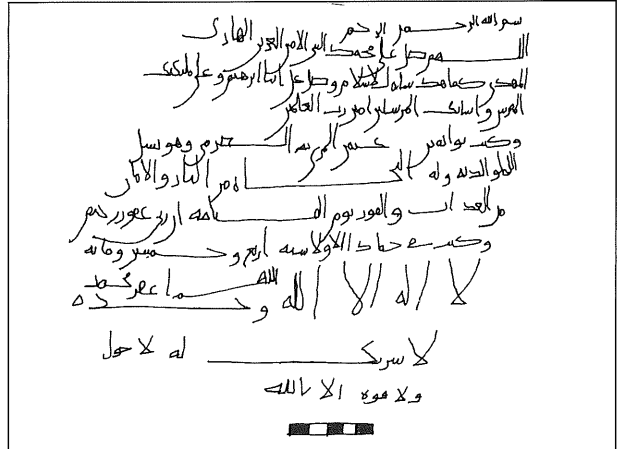 بسم الله الرحمن الرحيم
اللهم صل على محمد النبي الامي العربي الهادي
المهدي كما هدى للاسلام وصل على ابينا ابرهيم وعلى ملئكتك
المقربين وانبيائك المرسلين امين رب العالمين
وكتب بن المزني ثم وهو يسل
الله لوالديه وله النجاه من النار والامان
من العذاب والفوز يوم القيامه ان ربي غفور رحيم
وكتب في جماد الاولا سنه اربع وخمسين ومائه
اللهم اغفر لمحمد
لا اله الا الله وحده
لا شريك له لا حول
ولا قوه الا بالله